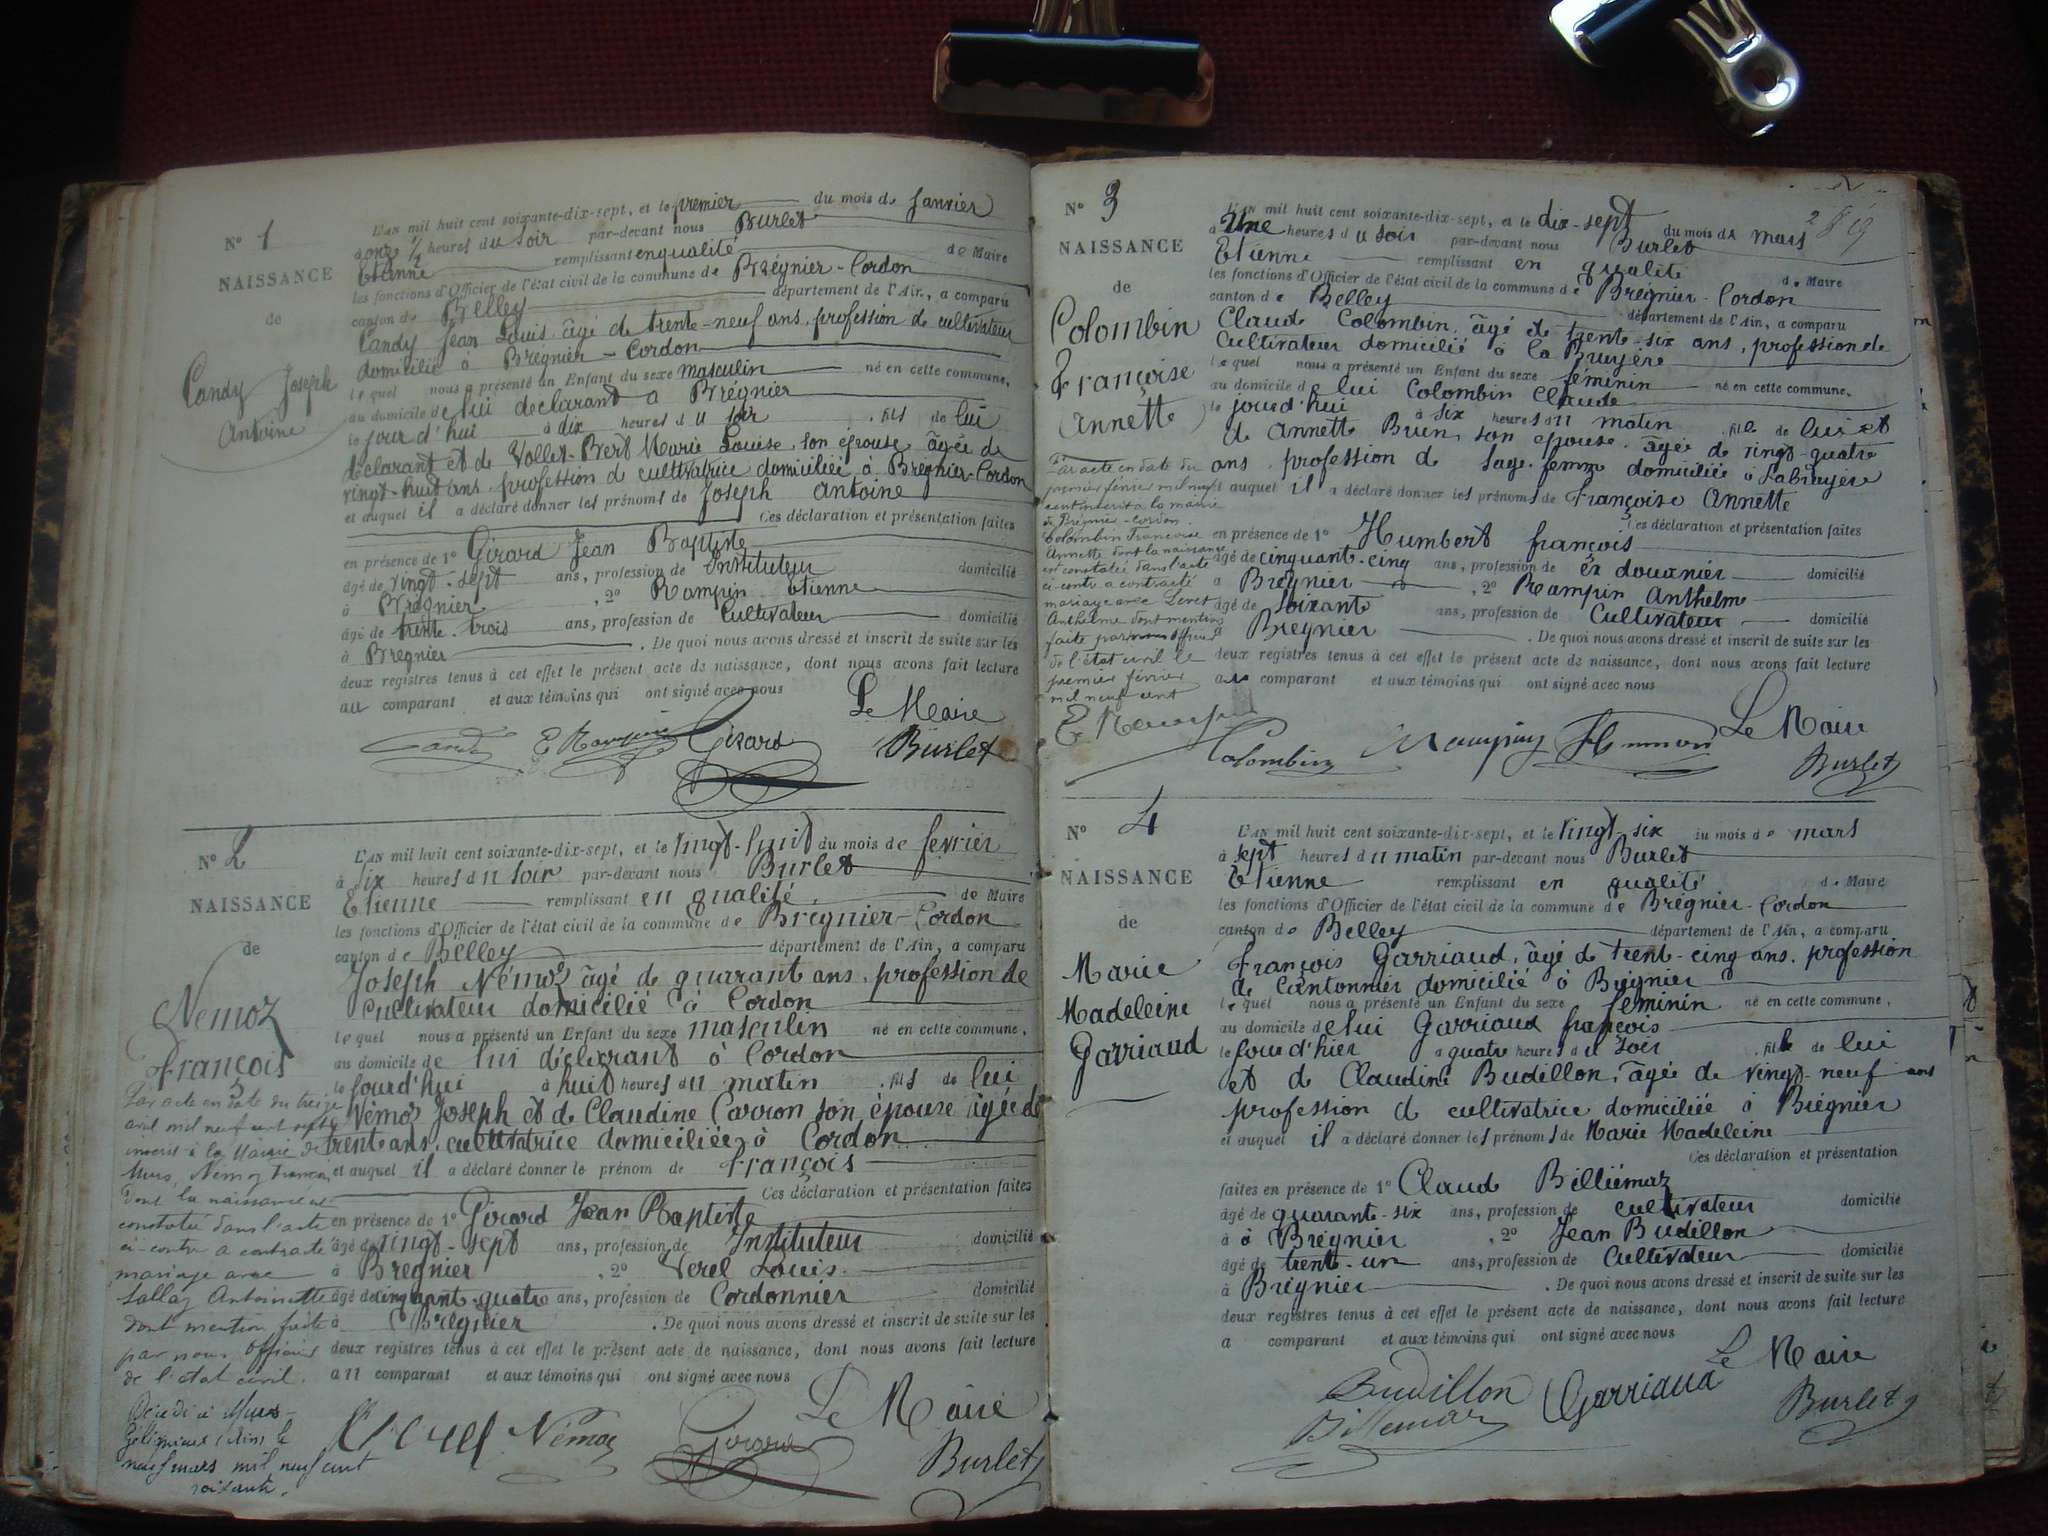 N° 1
NAISSANCE
de
Candy Joseph
Antoine
L'AN mil huit cent soixante-dix-sept, et le premier du mois de Janvier
à onze ½ heures du soir par-devant nous Burlet
Etienne remplissant en qualité de Maire
les fonctions d'Officier de l'état civil de la commune de Brégnier-Cordon
canton de Belley département de l'Ain, a comparu
Candy Jean Louis âgé de trente-neuf ans, profession de cultivateur
domicilié à Brégnier-Cordon
lequel nous a présenté un Enfant du sexe masculin né en cette commune,
au domicile de lui déclarant a Brégnier
le jour d'hui à dix heures du soir, fils de lui
déclarant et de Vollet-Bert Marie Louise, son épouse, âgée de
vingt-huit ans, profession de cultivatrice domiciliée à Brégnier-Cordon
et auquel il a déclaré donner les prénoms de Joseph Antoine
Ces déclaration et présentation faites
en présence de 1° Girard Jean Baptiste
âgé de vingt-sept ans, profession de Instituteur domicilié
à Brégnier, 2° Rampin Etienne
âgé de trente-trois ans, profession de Cultivateur domicilié
à Brégnier. De quoi nous avons dressé et inscrit de suite sur les
deux registres tenus à cet effet le présent acte de naissance, dont nous avons fait lecture
au comparant et aux témoins qui ont signé avec nous
Le Maire
Candy E Rampin Girard Burlet
N° 2
NAISSANCE
de
Nemoz
François
Par acte en date du treize
avril mil neuf cent sept
inscrit à la Mairie de
Murs, Nemoz François
dont la naissance est
constatée dans l'acte
ci-contre a contracté
mariage avec
Sallaz Antoinette
dont mention faite
par nous Officier
de l'état civil.
Décédé à Murs-
Gélignieux (Ain) le
neuf mars mil neuf cent
soixante.
L'AN mil huit cent soixante-dix-sept, et le vingt-huit du mois de février
à six heures du soir par-devant nous Burlet
Etienne remplissant en qualité de Maire
les fonctions d'Officier de l'état civil de la commune de Brégnier-Cordon
canton de Belley département de l'Ain, a comparu
Joseph Némoz âgé de quarant ans, profession de
Cultivateur domicilié à Cordon
lequel nous a présenté un Enfant du sexe masculin né en cette commune,
au domicile de lui déclarant à Cordon
le jourd'hui à huit heures du matin, fils de lui
Némoz Joseph et de Claudine Carron son épouse âgée de
trente ans, cultivatrice domiciliée à Cordon
et auquel il a déclaré donner le prénom de François
Ces déclaration et présentation faites
en présence de 1° Girard Jean Baptiste
âgé de vingt-sept ans, profession de Instituteur domicilié
à Brégnier, 2° Verel Louis
âgé de cinquant-quatre ans, profession de Cordonnier domicilié
à Brégnier. De quoi nous avons dressé et inscrit de suite sur les
deux registres tenus à cet effet le présent acte de naissance, dont nous avons fait lecture
au comparant et aux témoins qui ont signé avec nous
Le Maire
Verel Némoz Girard Burlet
N° 3
NAISSANCE
de
Colombin
Françoise
Annette
Par acte en date du
premier février mil neuf
cent inscrit a la mairie
de Brégnier-Cordon
Colombin Françoise
Annette dont la naissance
est constatée dans l'acte
ci-contre a contracté
mariage avec
Anthelme dont mention
faite par nous officier
de l'état civil le
premier février
mil neuf cent
L'AN mil huit cent soixante-dix-sept, et le dix-sept du mois de mars
à une heures du soir par-devant nous Burlet
Etienne remplissant en qualité de Maire
les fonctions d'Officier de l'état civil de la commune de Brégnier-Cordon
canton de Belley département de l'Ain, a comparu
Claude Colombin, âgé de trente-six ans, profession de
Cultivateur domicilié à la Bruyère
lequel nous a présenté un Enfant du sexe féminin né en cette commune,
au domicile de lui Colombin Claude
le jourd'hui à six heures du matin, fille de lui et
de Annette Buin, son épouse, âgée de vingt-quatre
ans, profession de Sage-femme domiciliée à Labruyère
et auquel il a déclaré donner les prénoms de Françoise Annette
Ces déclaration et présentation faites
en présence de 1° Humbert françois
âgé de cinquant-cinq ans, profession de ex douanier domicilié
à Brégnier, 2° Rampin Anthelme
âgé de soixante ans, profession de Cultivateur domicilié
à Brégnier. De quoi nous avons dressé et inscrit de suite sur les
deux registres tenus à cet effet le présent acte de naissance, dont nous avons fait lecture
au comparant et aux témoins qui ont signé avec nous
Le Maire
Colombin Rampin Burlet
N° 4
NAISSANCE
de
Marie
Madeleine
Garriaud
L'AN mil huit cent soixante-dix-sept, et le vingt-six du mois de mars
à sept heures du matin par-devant nous Burlet
Etienne remplissant en qualité de Maire
les fonctions d'Officier de l'état civil de la commune de Brégnier-Cordon
canton de Belley département de l'Ain, a comparu
François Garriaud, âgé de trent-cinq ans, profession
de Cantonnier domicilié à Brégnier
lequel nous a présenté un Enfant du sexe féminin né en cette commune,
au domicile de lui Garriaud françois
le jour d'hier à quatre heures du soir, fille de lui
et de Claudine Budillon, âgée de vingt-neuf ans
profession de cultivatrice domiciliée à Brégnier
et auquel il a déclaré donner les prénoms de Marie Madeleine
Ces déclaration et présentation
faites en présence de 1° Claude Billiémaz
âgé de quarante-six ans, profession de cultivateur domicilié
à à Brégnier, 2° Jean Budillon
âgé de trente-un ans, profession de Cultivateur domicilié
à Brégnier. De quoi nous avons dressé et inscrit de suite sur les
deux registres tenus à cet effet le présent acte de naissance, dont nous avons fait lecture
a comparant et aux témoins qui ont signé avec nous
Le Maire
Budillon Garriaud Burlet
Billemaz